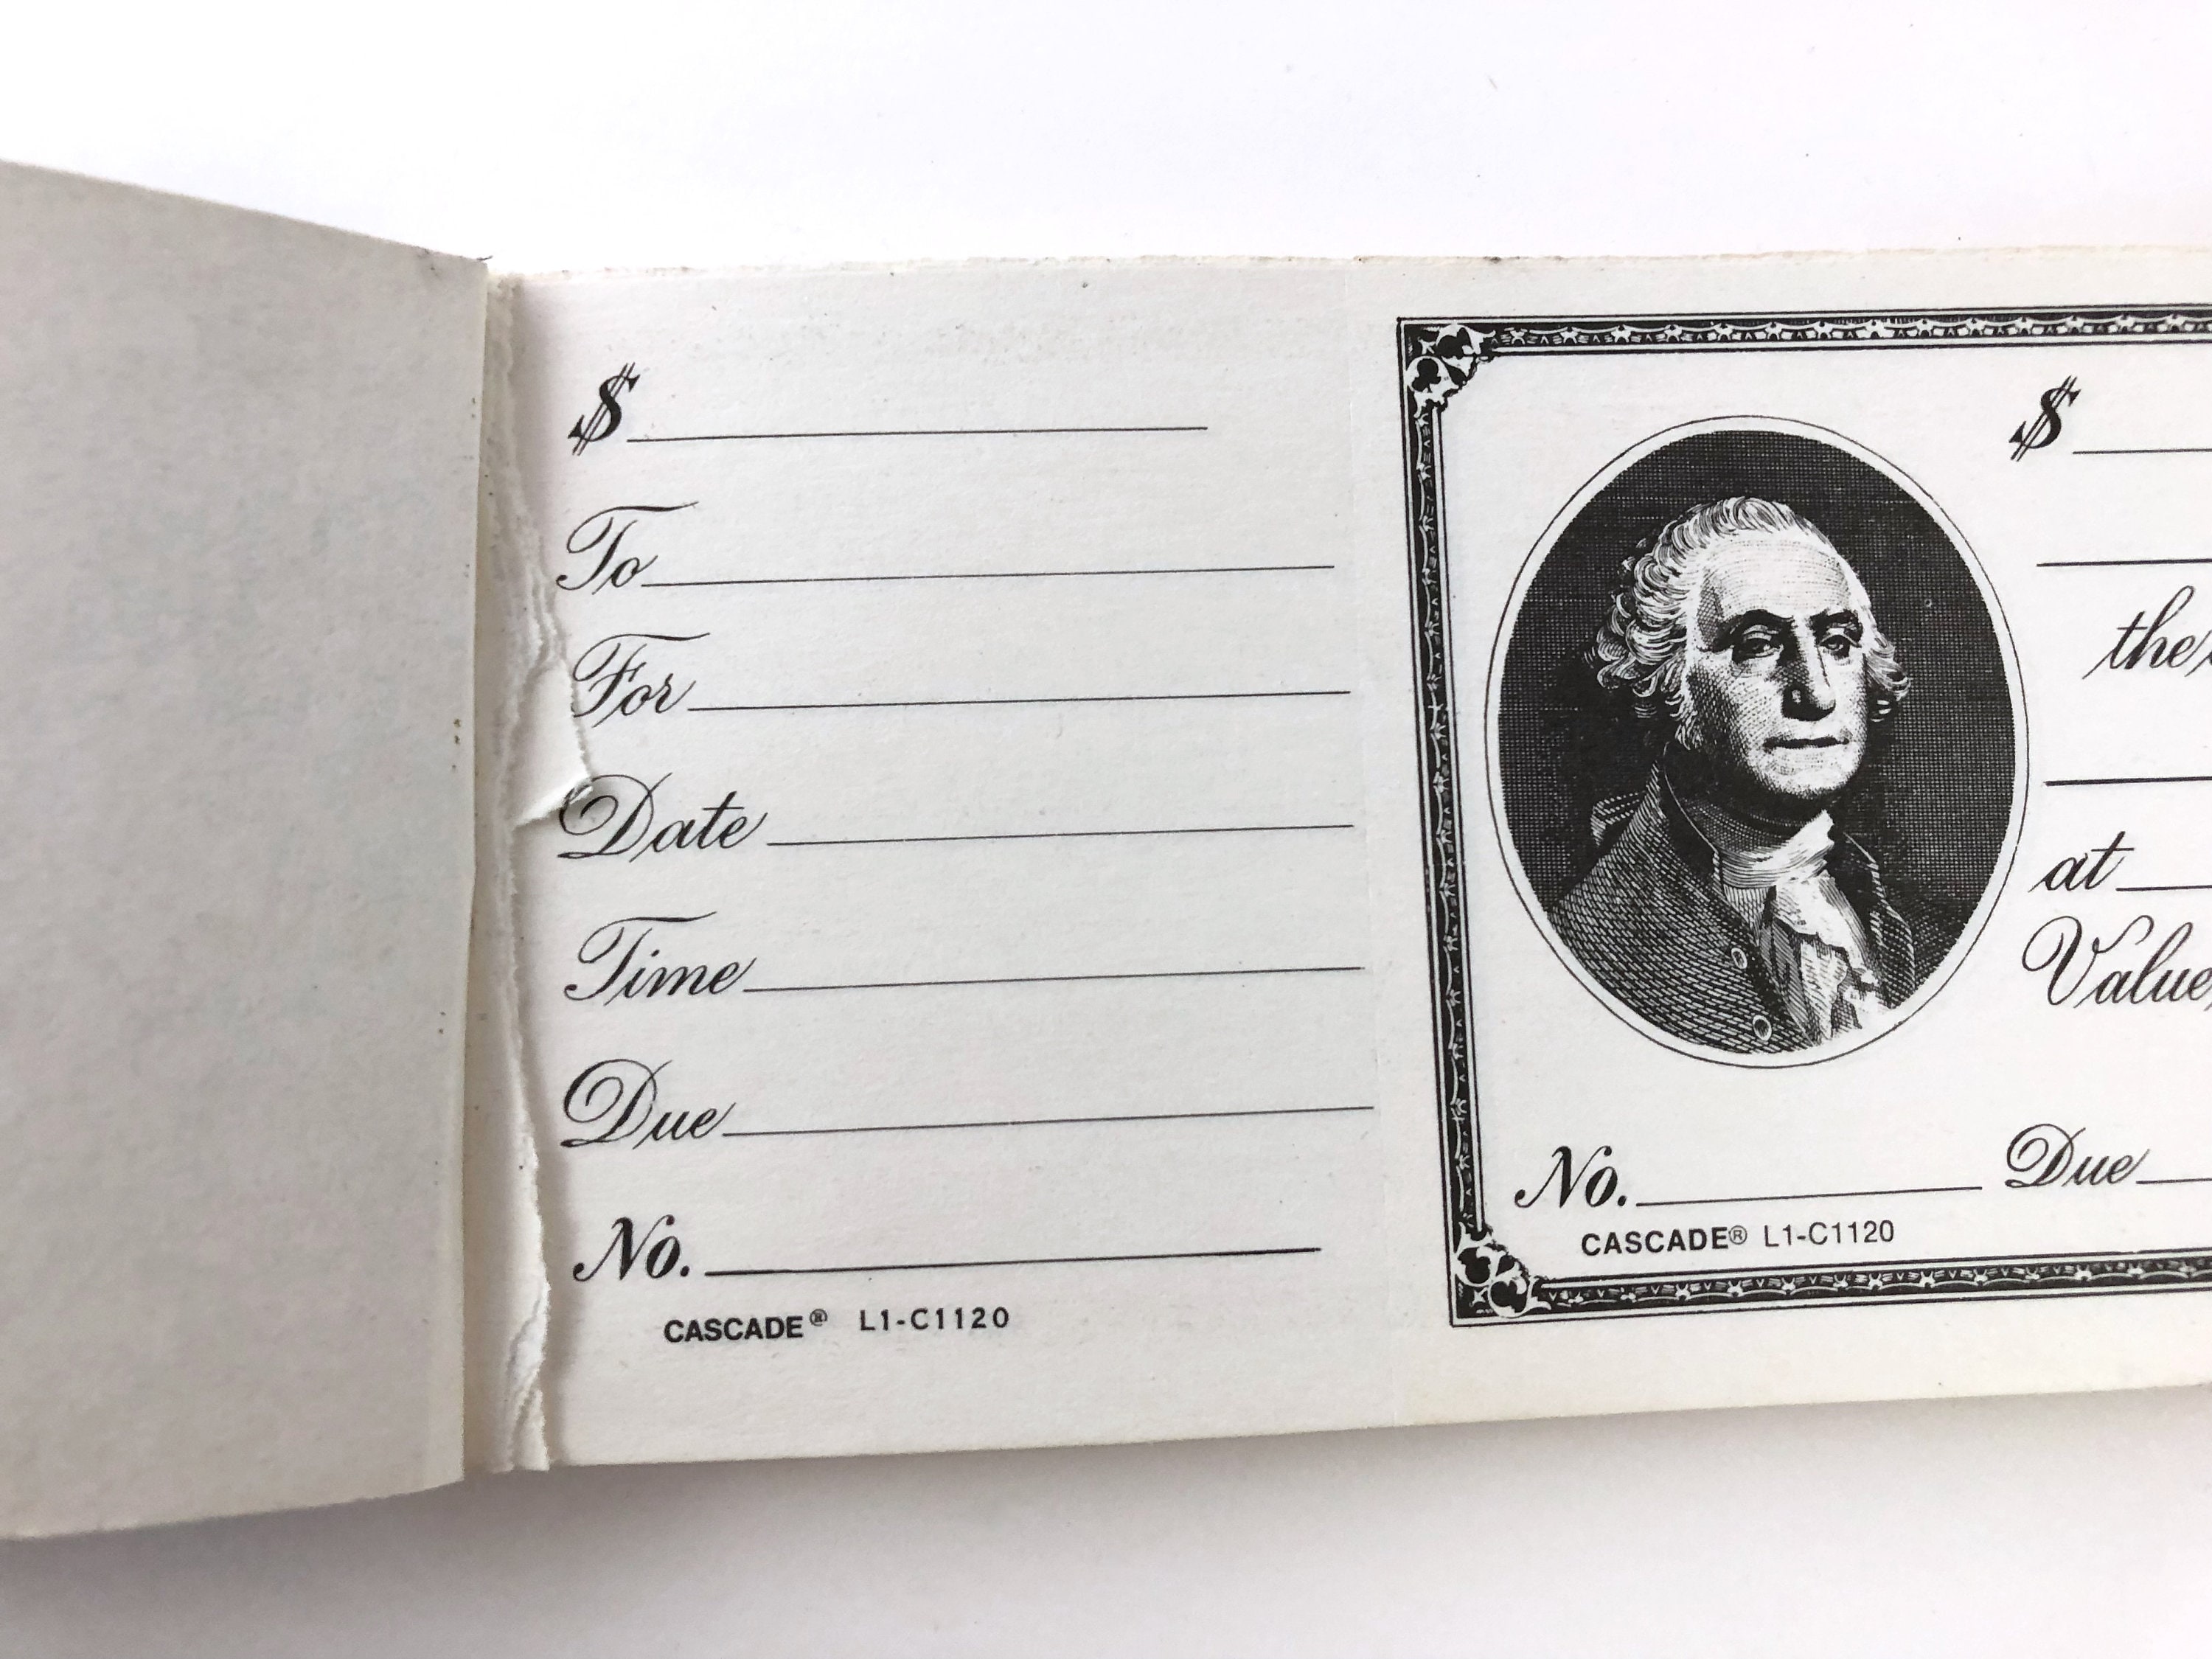 $
To
For
Date
Time
Due
No.
CASCADE® L1-C1120
$
the
at
Value
No. Due
CASCADE® L1-C1120